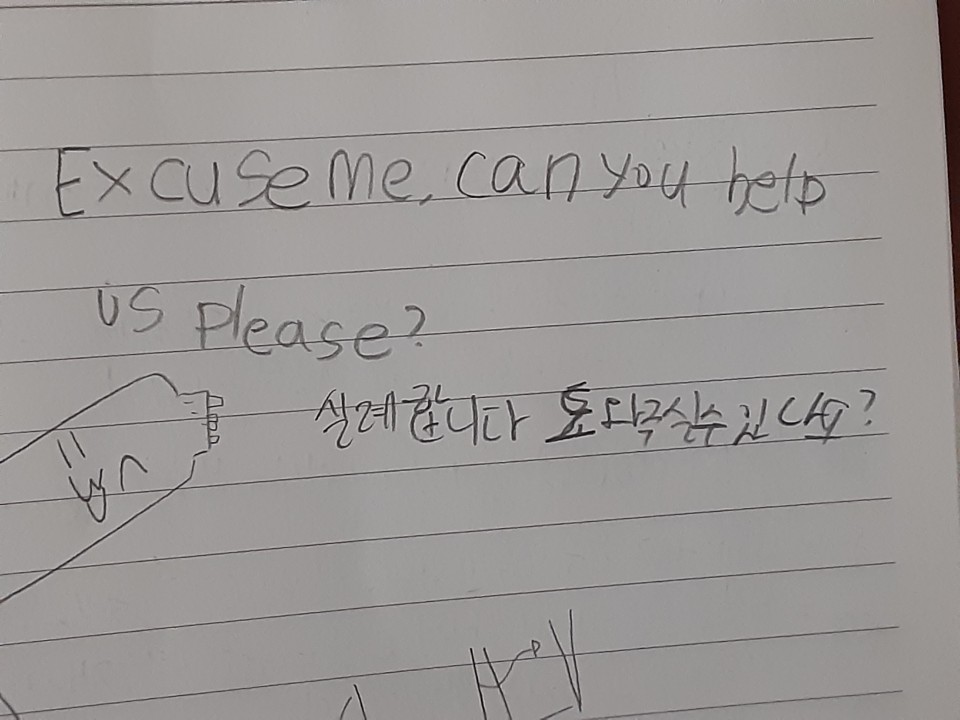 Excuse me, can you help
us please?
실례합니다 도와주실수 있나요?